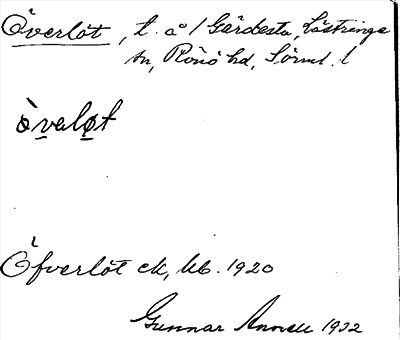 Överlöt, t. å / Gärdesta, Lästringe
sn, Rönö hd, Sörml. /
òveløt
Öfverlöt ek, kb. 1920
Gunnar Annell 1932